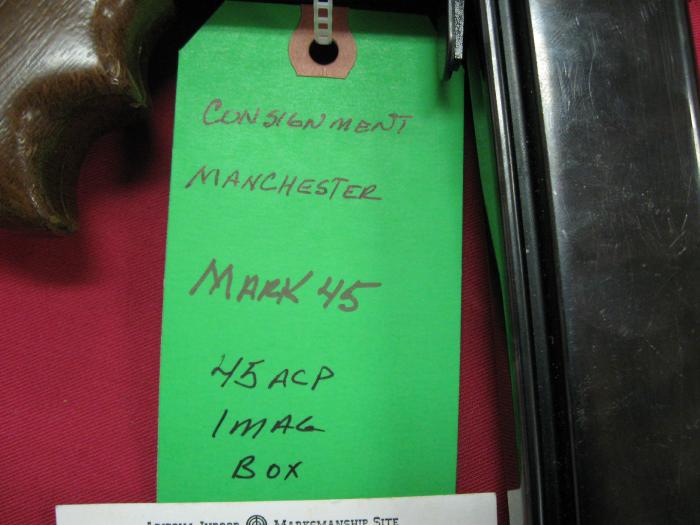 CONSIGNMENT
MANCHESTER
MARK 45
45 ACP
1 MAG
BOX
MARKSMANSHIP SITE